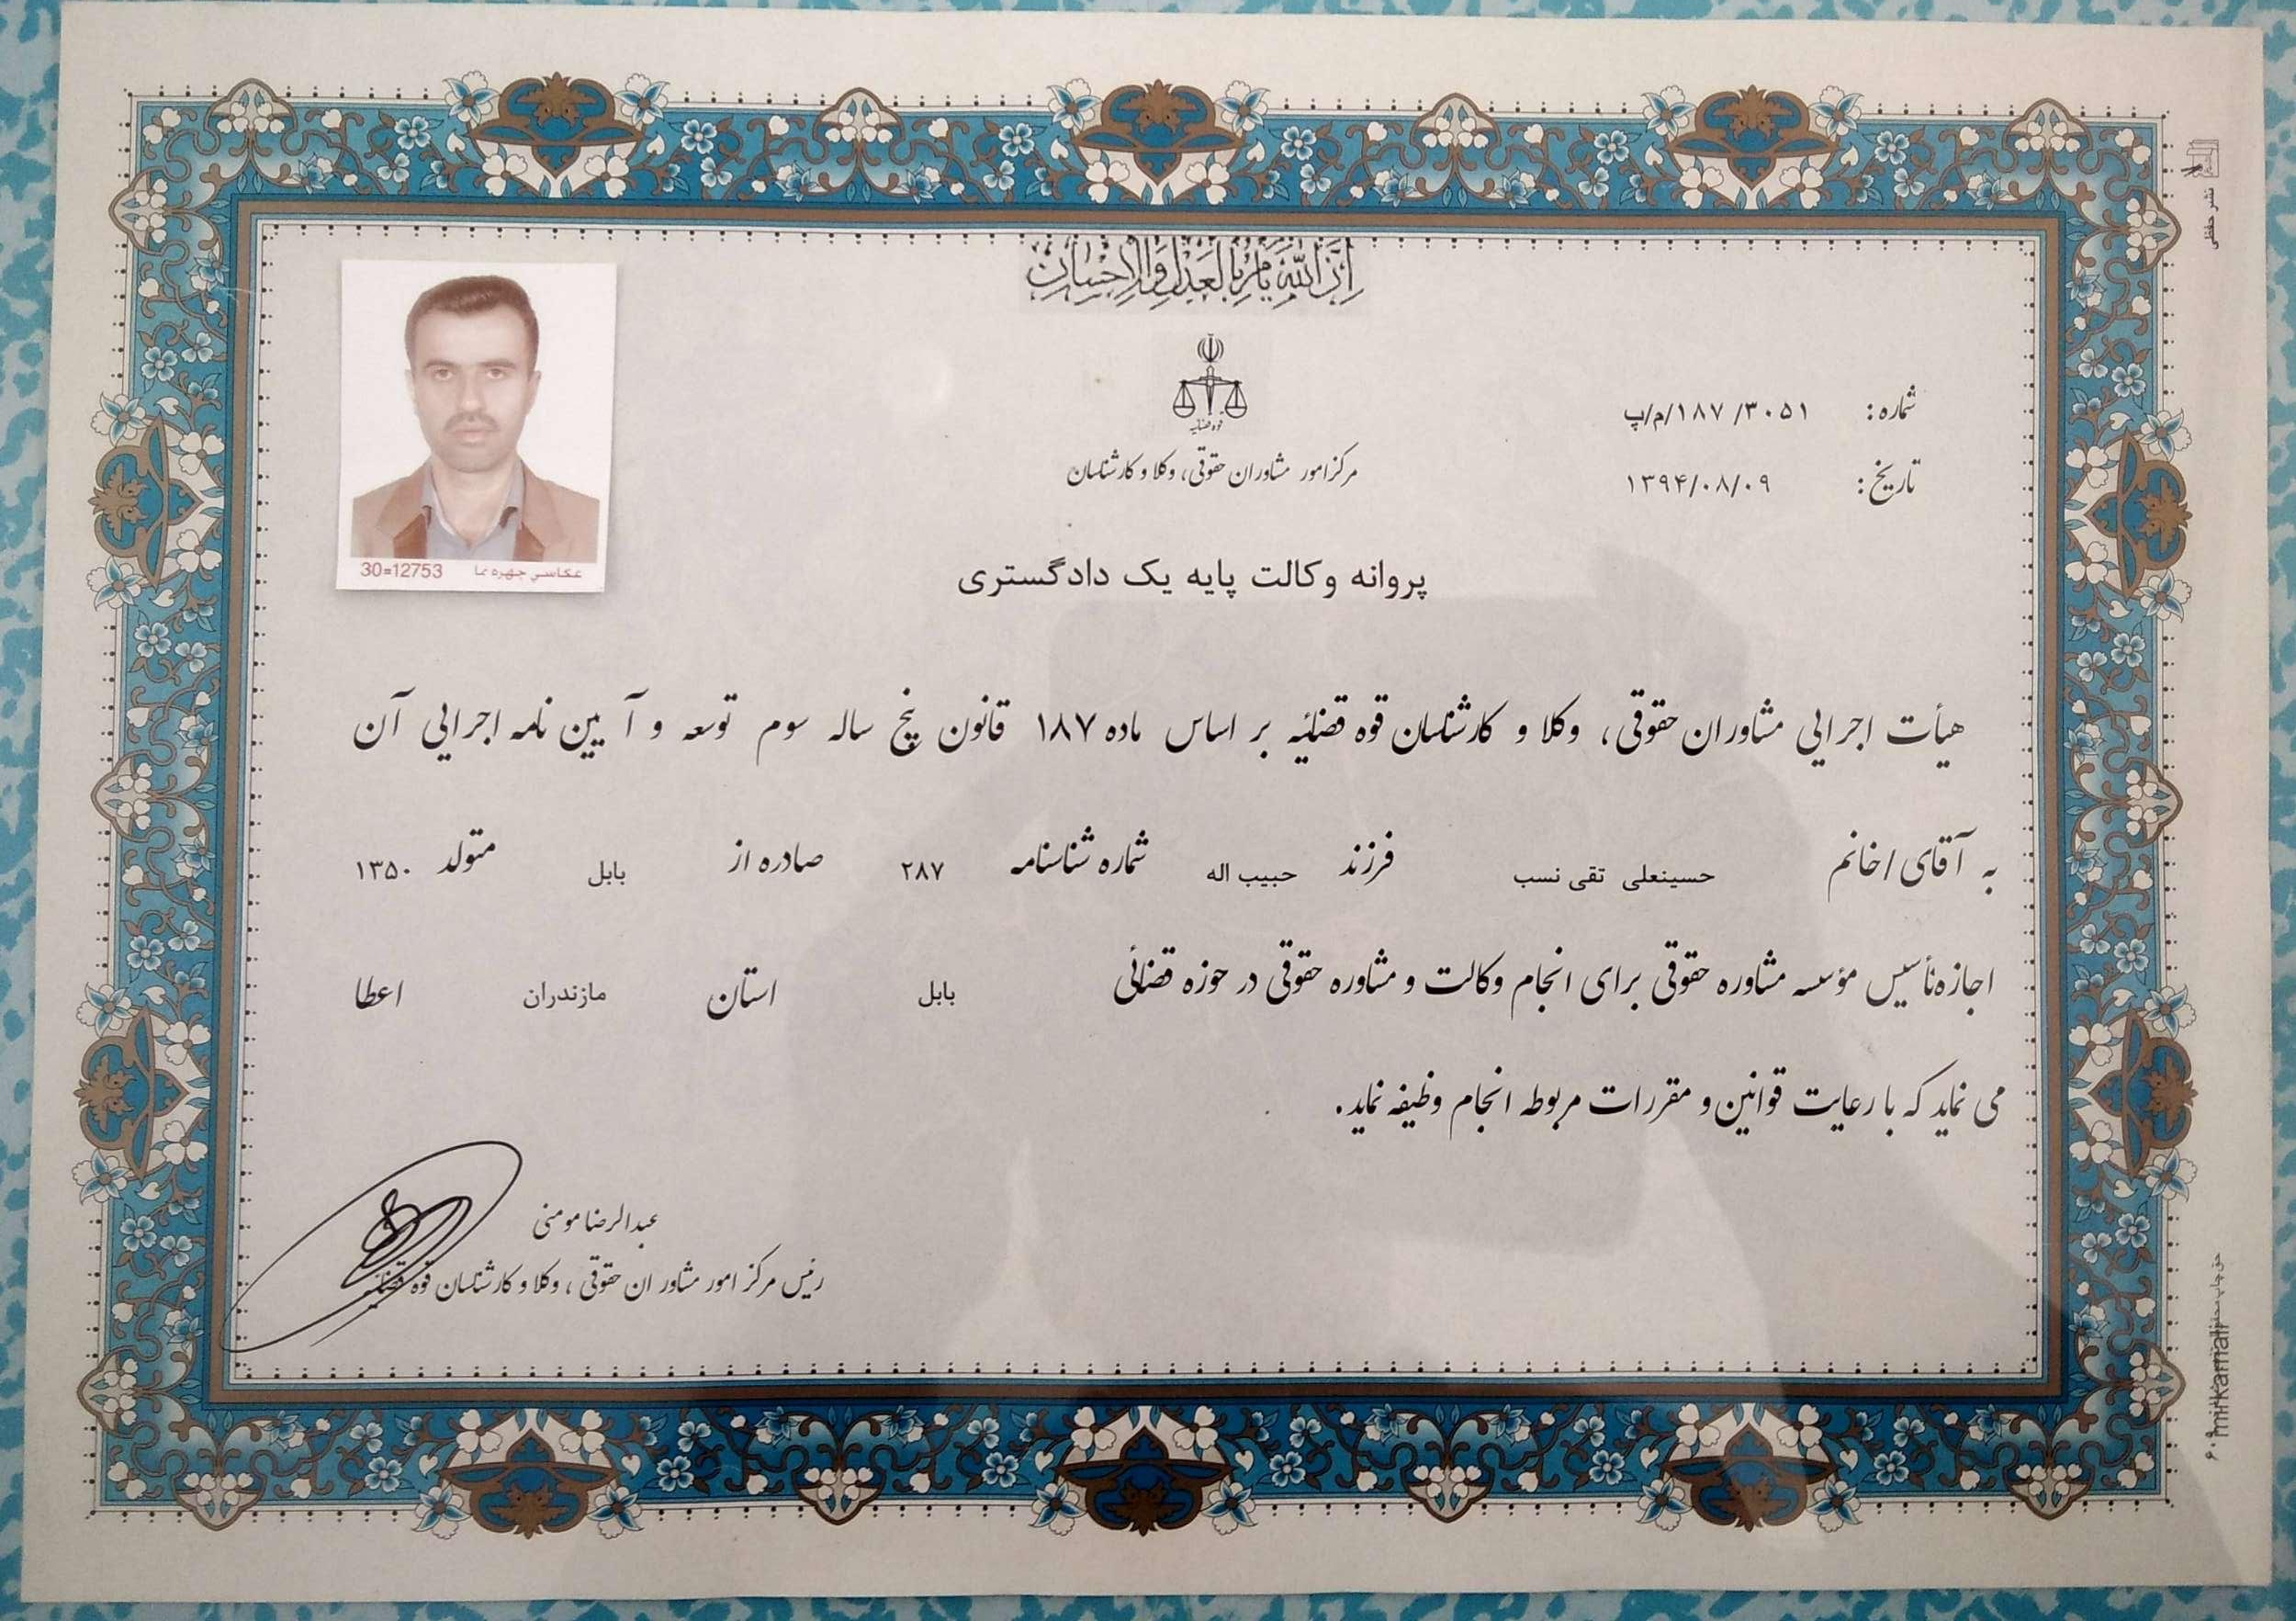 إن الله یأمر بالعدل والإحسان
قوه قضائیه
مرکز امور مشاوران حقوقی، وکلا و کارشناسان
شماره: ۳۰۵۱/ ۱۸۷/م/پ
تاریخ: ۱۳۹۴/۰۸/۰۹
عکاسی چهره نما 30=12753
پروانه وکالت پایه یک دادگستری
هیأت اجرایی مشاوران حقوقی، وکلا و کارشناسان قوه قضائیه بر اساس ماده ۱۸۷ قانون پنج ساله سوم توسعه و آیین نامه اجرایی آن
به آقای/خانم حسینعلی تقی نسب فرزند حبیب اله شماره شناسنامه ۲۸۷ صادره از بابل متولد ۱۳۵۰
اجازه تأسیس مؤسسه مشاوره حقوقی برای انجام وکالت و مشاوره حقوقی در حوزه قضائی بابل استان مازندران اعطا
می نماید که با رعایت قوانین و مقررات مربوطه انجام وظیفه نماید.
عبدالرضا مومنی
رئیس مرکز امور مشاوران حقوقی، وکلا و کارشناسان قوه قضائیه
نشر حفظی